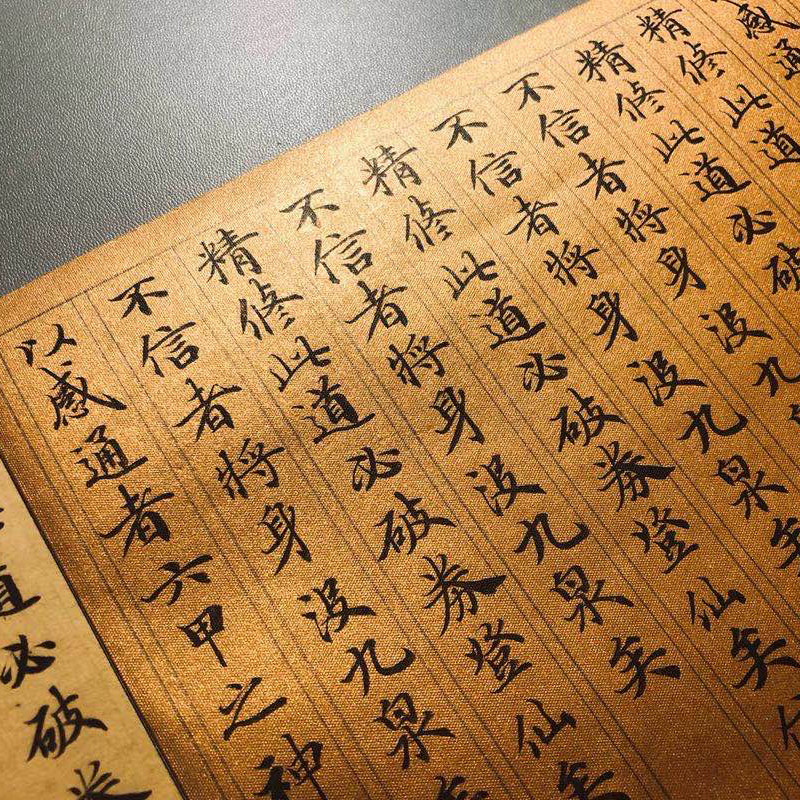 感通
精修此道
精修此道必破
不信者將身沒九
不信者將身沒九泉矣
精修此道必破券登仙矣
不信者將身沒九泉矣
精修此道必破券登仙矣
不信者將身沒九泉矣
以感通者六甲之神
道必破券